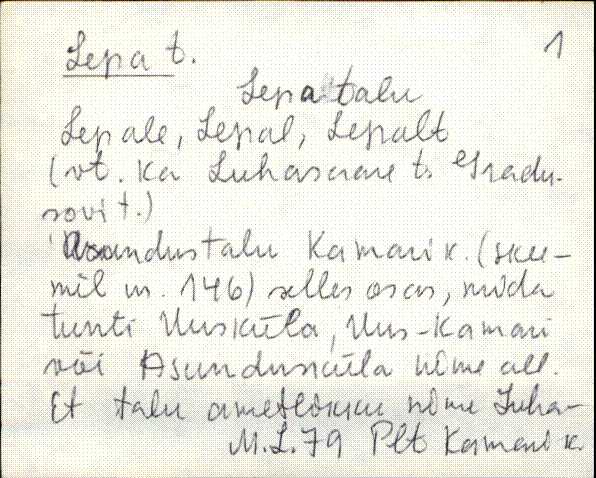 Lepa t. 1
Lepa talu
Lepale, Lepal, Lepalt
(vt. ka Luhasaare t. Gradu-
sovi t.)
Asundustalu Kamari k. (skee-
mil nr. 146) selles osas, mida
tunti Uusküla, Uus-Kamari
või Asundusküla nime all.
Et talu ametlikku nime Luha-
M.L.79 Plt Kamari k.